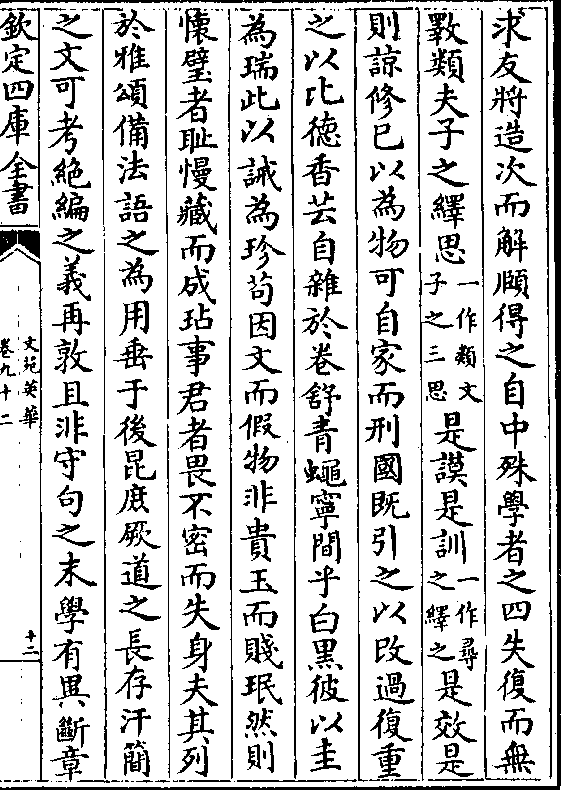 求友將造次而解頤得之自中殊學者之四失復而無
斁類夫子之繹思一作類文子之三思是謨是訓一作尋之繹之是效是
則諒修已以為物可自家而刑國既引之以改過復重
之以比德香芸自雜於卷舒青蠅寧間乎白黒彼以圭
為瑞此以誡為珍苟因文而假物非貴玉而賤珉然則
懷璧者耻慢藏而成玷事君者畏不密而失身夫其列
於雅頌備法語之為用垂于後昆庶厥道之長存汗簡
之文可考絶編之義再敦且非守句之末學有異斷章
欽定四庫全書
文苑英華
卷九十二
十二